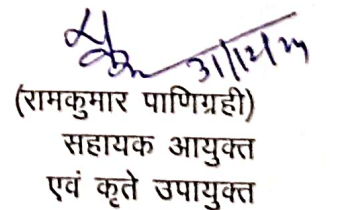 31/12/24
(रामकुमार पाणिग्रही)
सहायक आयुक्त
एवं कृते उपायुक्त